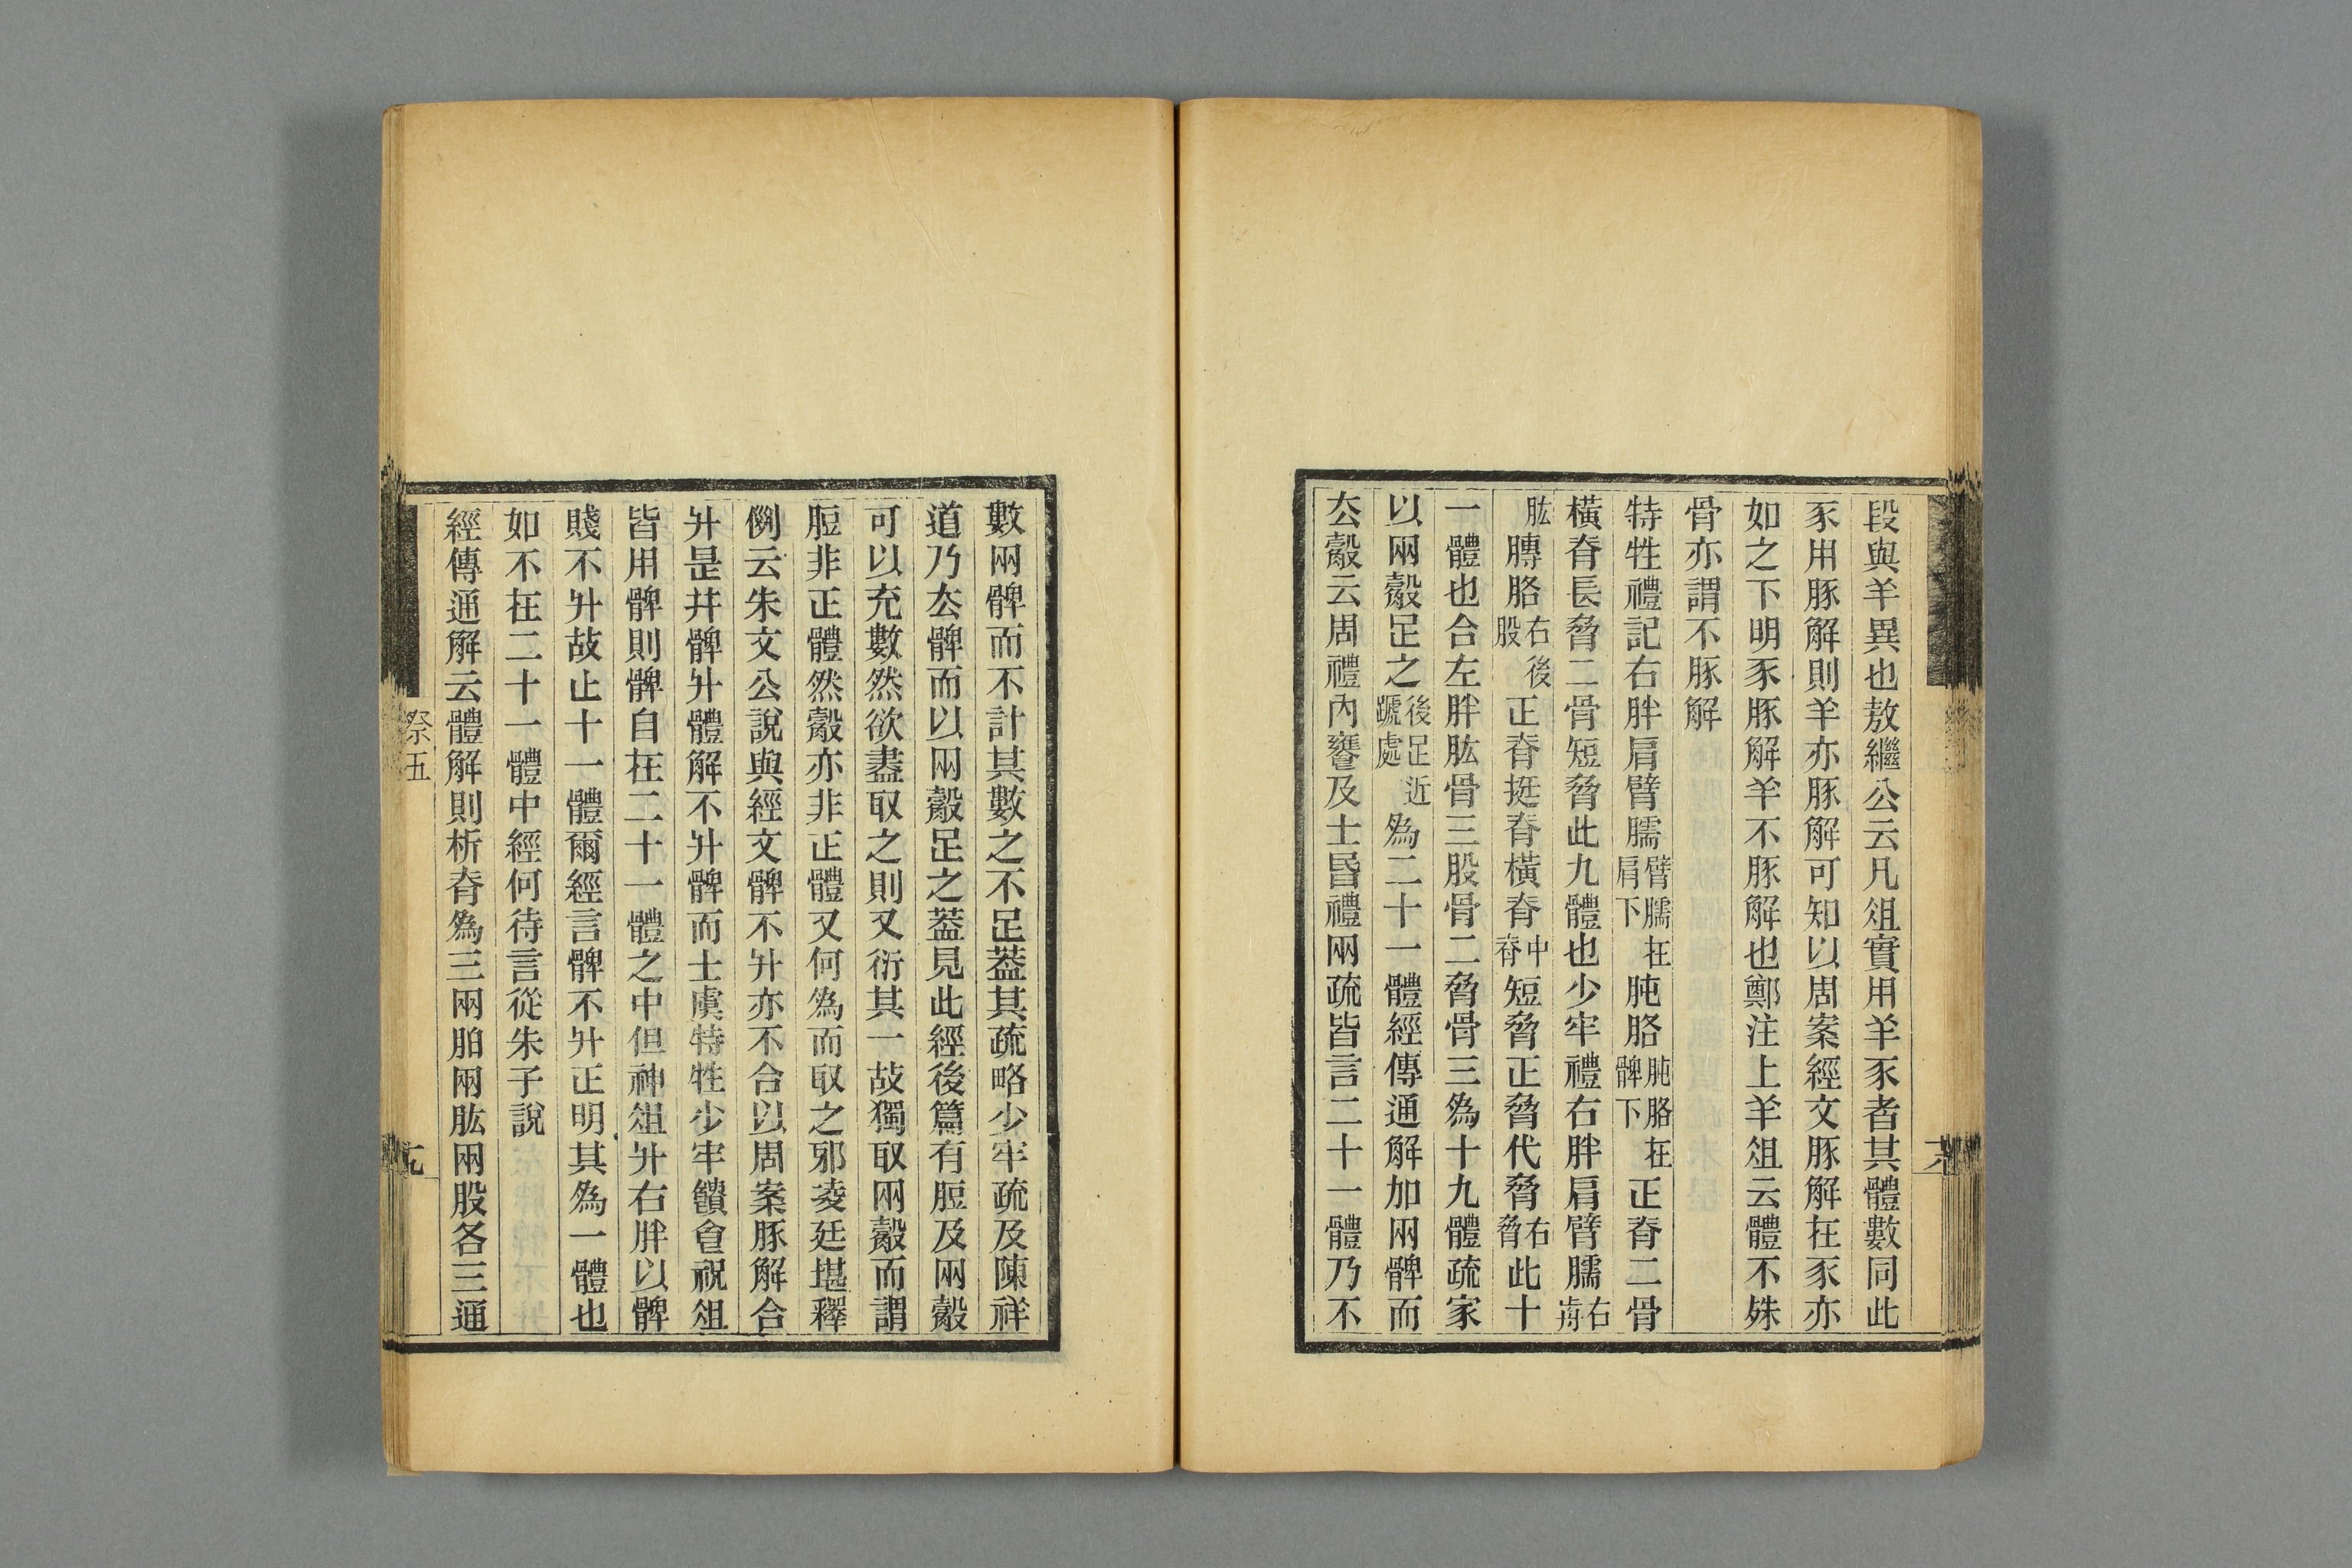 段與羊異也敖繼公云凡俎實用羊豕者其體數同此
豕用豚解則羊亦豚解可知以周案經文豚解在豕亦
如之下明豕豚解羊不豚解也鄭注上羊俎云體不殊
骨亦謂不豚解
特牲禮記右胖肩臂臑臂臑在肩下肫胳肫胳在髀下正脊二骨
橫脊長脅二骨短脅此九體也少牢禮右胖肩臂臑右前
肱膊胳右後股正脊挺脊橫脊中脊短脅正脅代脅右脅此十
一體也合左胖肱骨三股骨二脅骨三爲十九體疏家
以兩觳足之後足近蹏處爲二十一體經傳通解加兩髀而
去觳云周禮內饔及士昏禮兩疏皆言二十一體乃不
數兩髀而不計其數之不足蓋其疏略少牢疏及陳祥
道乃去髀而以兩觳足之蓋見此經後篇有脰及兩觳
可以充數然欲盡取之則又衍其一故獨取兩觳而謂
脰非正體然觳亦非正體又何爲而取之邪凌廷堪釋
例云朱文公說與經文髀不升亦不合以周案豚解合
升是幷髀升體解不升髀而士虞特牲少牢饋食祝俎
皆用髀則髀自在二十一體之中但神俎升右胖以髀
賤不升故止十一體爾經言髀不升正明其爲一體也
如不在二十一體中經何待言從朱子說
經傳通解云體解則析脊爲三兩胉兩肱兩股各三通
祭五